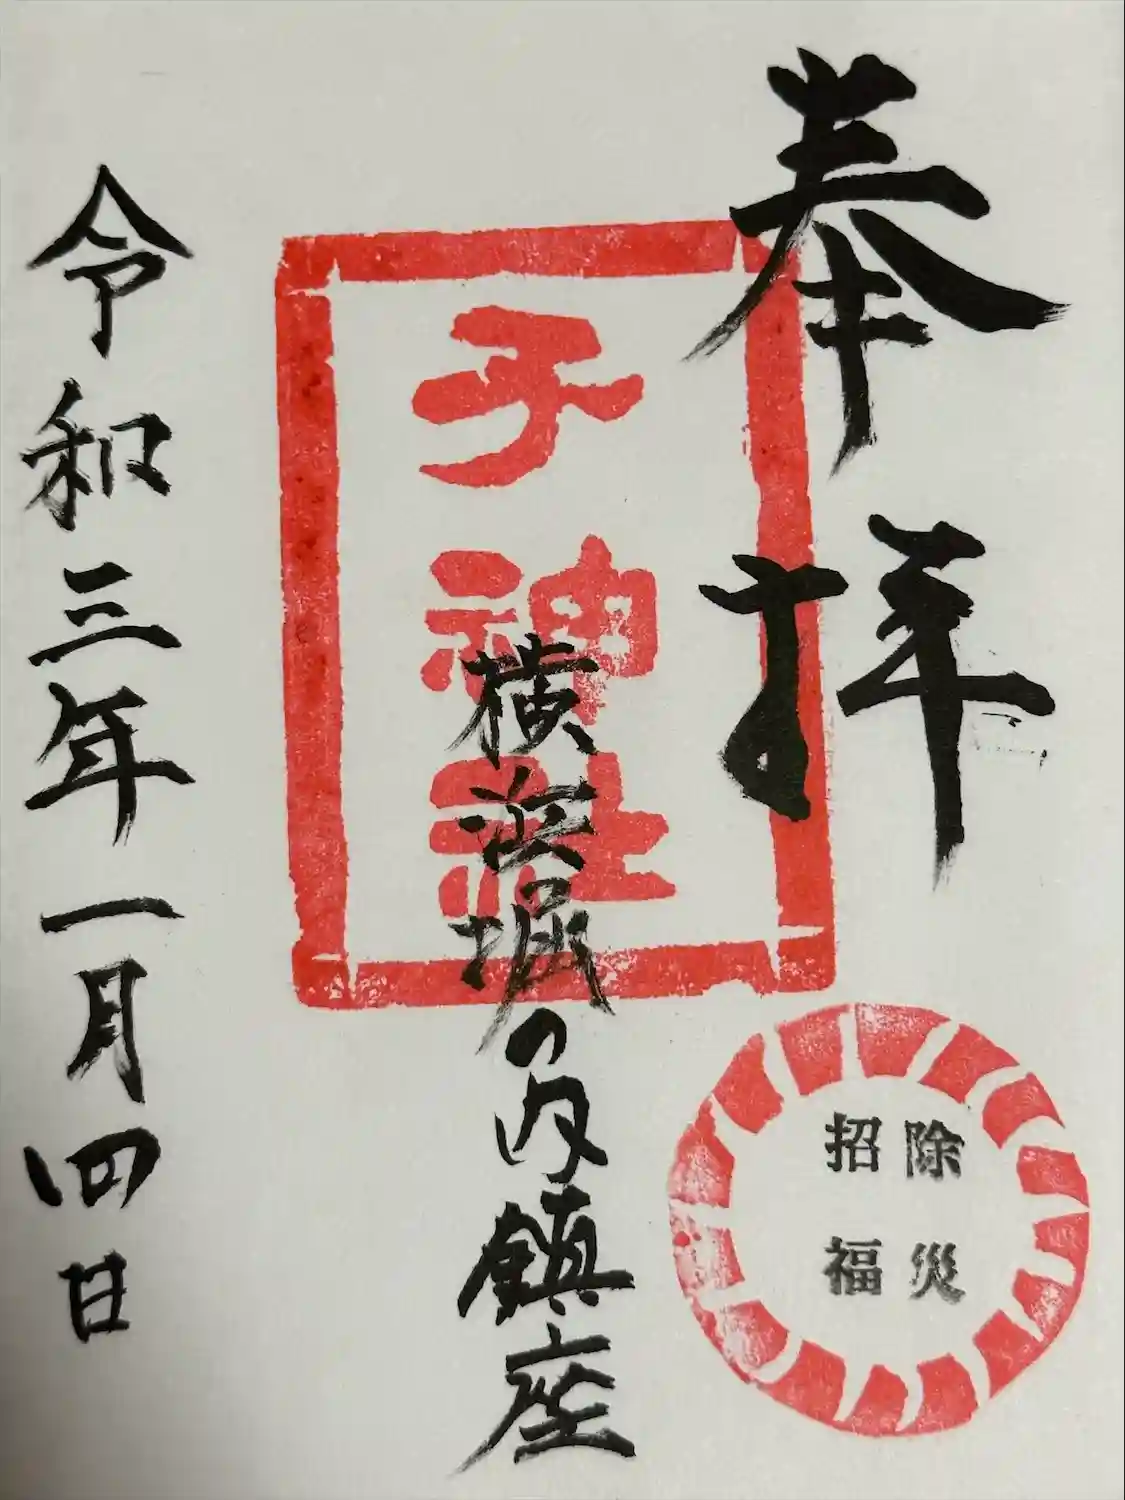 奉拝
除災
招福
子神社
横浜堀の内鎮座
令和三年一月四日